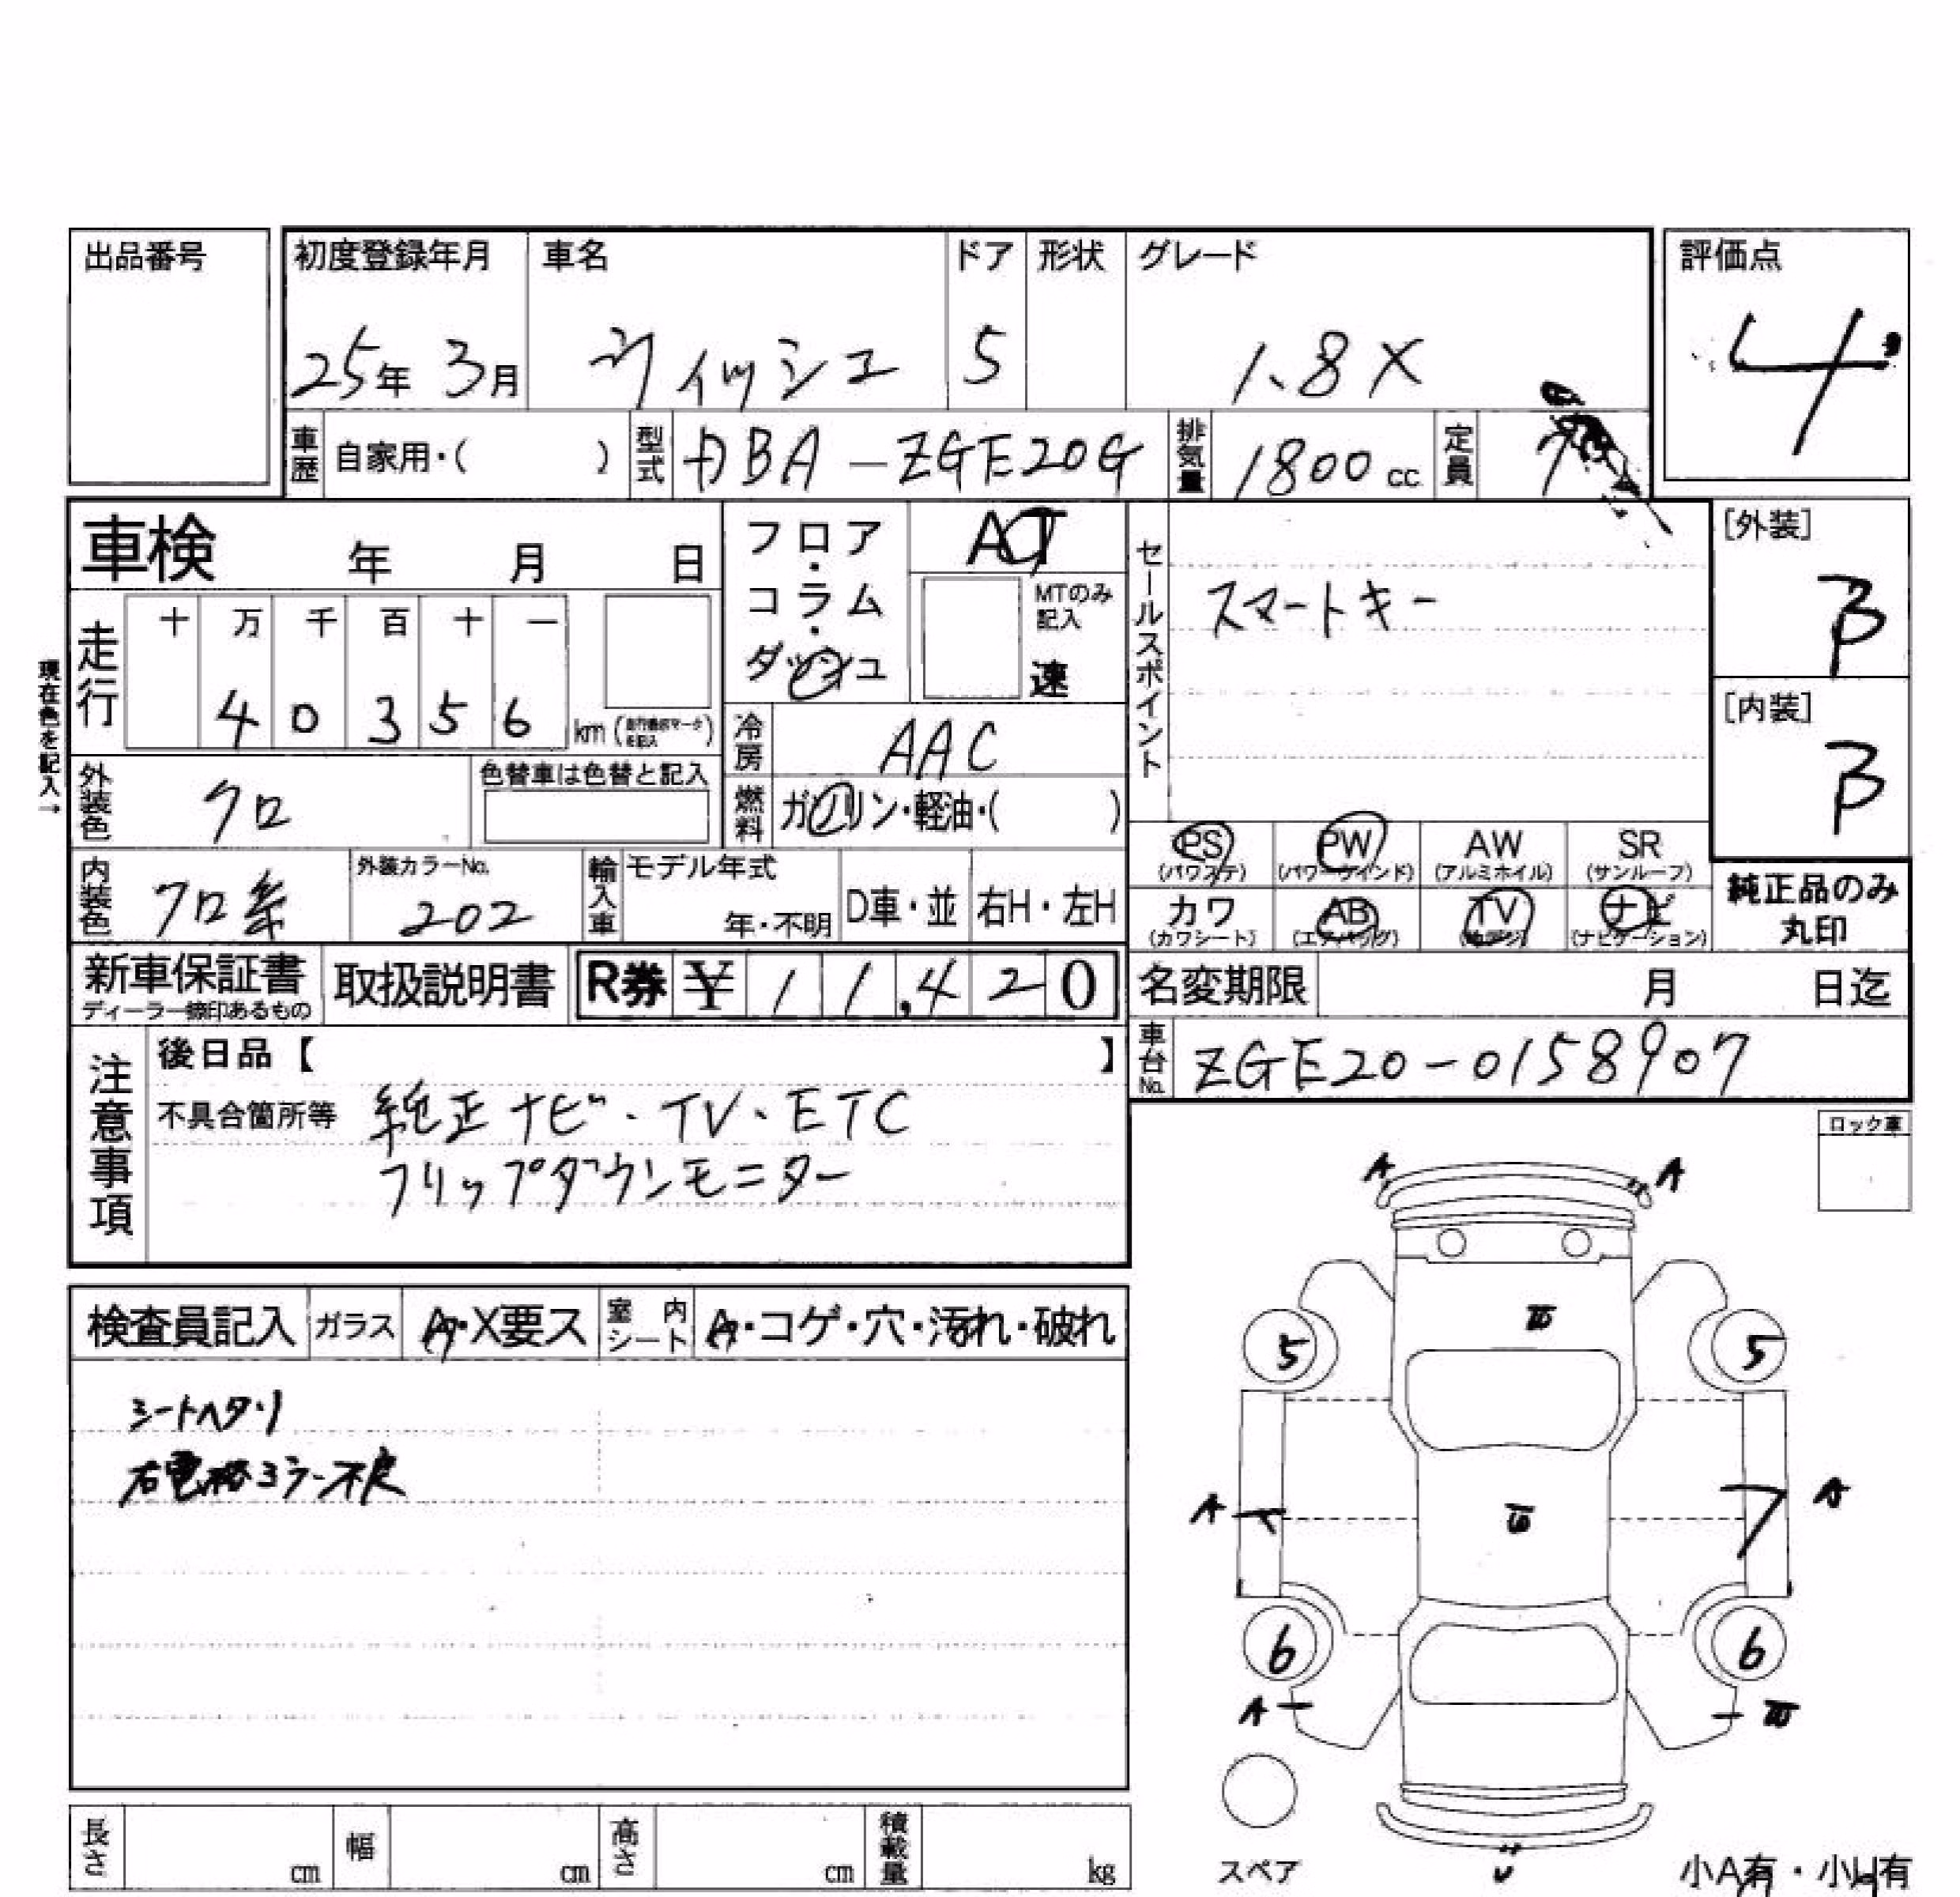 出品番号
初度登録年月 車名 ドア 形状 グレード 評価点
25年 3月 ウィッシュ 5 1.8X 4
車歴 自家用・( ) 型式 DBA-ZGE20G 排気量 1800cc 定員 7
車検 年 月 日
フロア・コラム・ダッシュ AT
MTのみ記入
速
セールスポイント スマートキー
[外装]
B
[内装]
B
現在色を記入→
走行 十 万 千 百 十 一
4 0 3 5 6 km
冷房 AAC
外装色 クロ 色替車は色替と記入
燃料 ガソリン・軽油・( )
PS PW AW SR
(パワステ) (パワーウインド) (アルミホイル) (サンルーフ)
カワ AB TV ナビ
(カワシート) (エアバッグ) (ナビゲーション)
純正品のみ
丸印
内装色 クロ系 外装カラーNo. 202 輸入車 モデル年式 年・不明 D車・並 右H・左H
新車保証書 取扱説明書 R券 ¥ 1 1,4 2 0
ディーラー捺印あるもの
名変期限 月 日迄
車台No. ZGE20-0158907
注意事項
後日品【 】
不具合箇所等 純正ナビ・TV・ETC
フリップダウンモニター
ロック車
検査員記入 ガラス A・X要ス 室内シート A・コゲ・穴・汚れ・破れ
シートヘタリ
右電格ミラー不良
A A
5 5
A A
6 6
A
スペア
小A有・小U有
長さ cm 幅 cm 高さ cm 積載量 kg